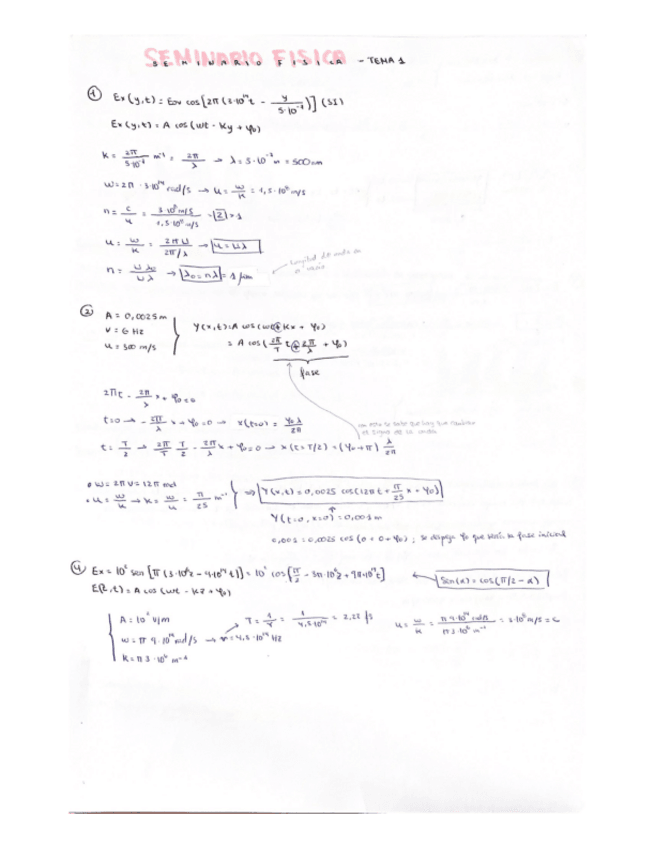 SEMINARIO FISICA - TEMA 1
① Ex(y,t) = Eox cos[2π(3·10¹⁴t - y/5·10⁻⁷)] (SI)
Ex(y,t) = A cos(ωt - Ky + φ₀)
K = 2π/5·10⁻⁷ m⁻¹ = 2π/λ → λ = 5·10⁻⁷ m = 500nm
ω = 2π · 3·10¹⁴ rad/s → u = ω/k = 1,5·10⁸ m/s
n = c/u = 3·10⁸ m/s / 1,5·10⁸ m/s = 2 > 1
u = ω/k = 2πν / 2π/λ → u = νλ
n = νλ₀/νλ → λ₀ = nλ = 1 μm
longitud de onda en
② A = 0,0025m
ν = 6 Hz
u = 300 m/s
Y(x,t) = A cos(ωt + Kx + φ₀)
= A cos(2π/T t + 2π/λ x + φ₀)
fase
2πt - 2π/λ x + φ₀ = 0
t=0 → - 2π/λ x + φ₀ = 0 → x(t=0) = φ₀λ/2π
t = T/2 → 2π/T T/2 - 2π/λ x + φ₀ = 0 → x(t=T/2) = (φ₀+π) λ/2π
el signo de la onda
ω = 2πν = 12π rad
u = ω/k → k = ω/u = π/25 m⁻¹
⇒ Y(x,t) = 0,0025 cos(12πt + π/25 x + φ₀)
Y(t=0, x=0) = 0,001m
0,001 = 0,0025 cos(0 + 0 + φ₀); se despeja φ₀ que sería la fase inicial
④ Ex = 10² sen[π(3·10⁶z - 9·10¹⁴t)] = 10² cos[π/2 - 3π·10⁶z + 9π·10¹⁴t]
Sen(α) = cos(π/2 - α)
E(z,t) = A cos(ωt - kz + φ₀)
A = 10² V/m
ω = π 9·10¹⁴ rad/s → ν = 4,5·10¹⁴ Hz
K = π 3·10⁶ m⁻¹
T = 1/ν = 1/4,5·10¹⁴ = 2,22 fs
u = ω/k = π 9·10¹⁴ rad/s / π 3·10⁶ m⁻¹ = 3·10⁸ m/s = c